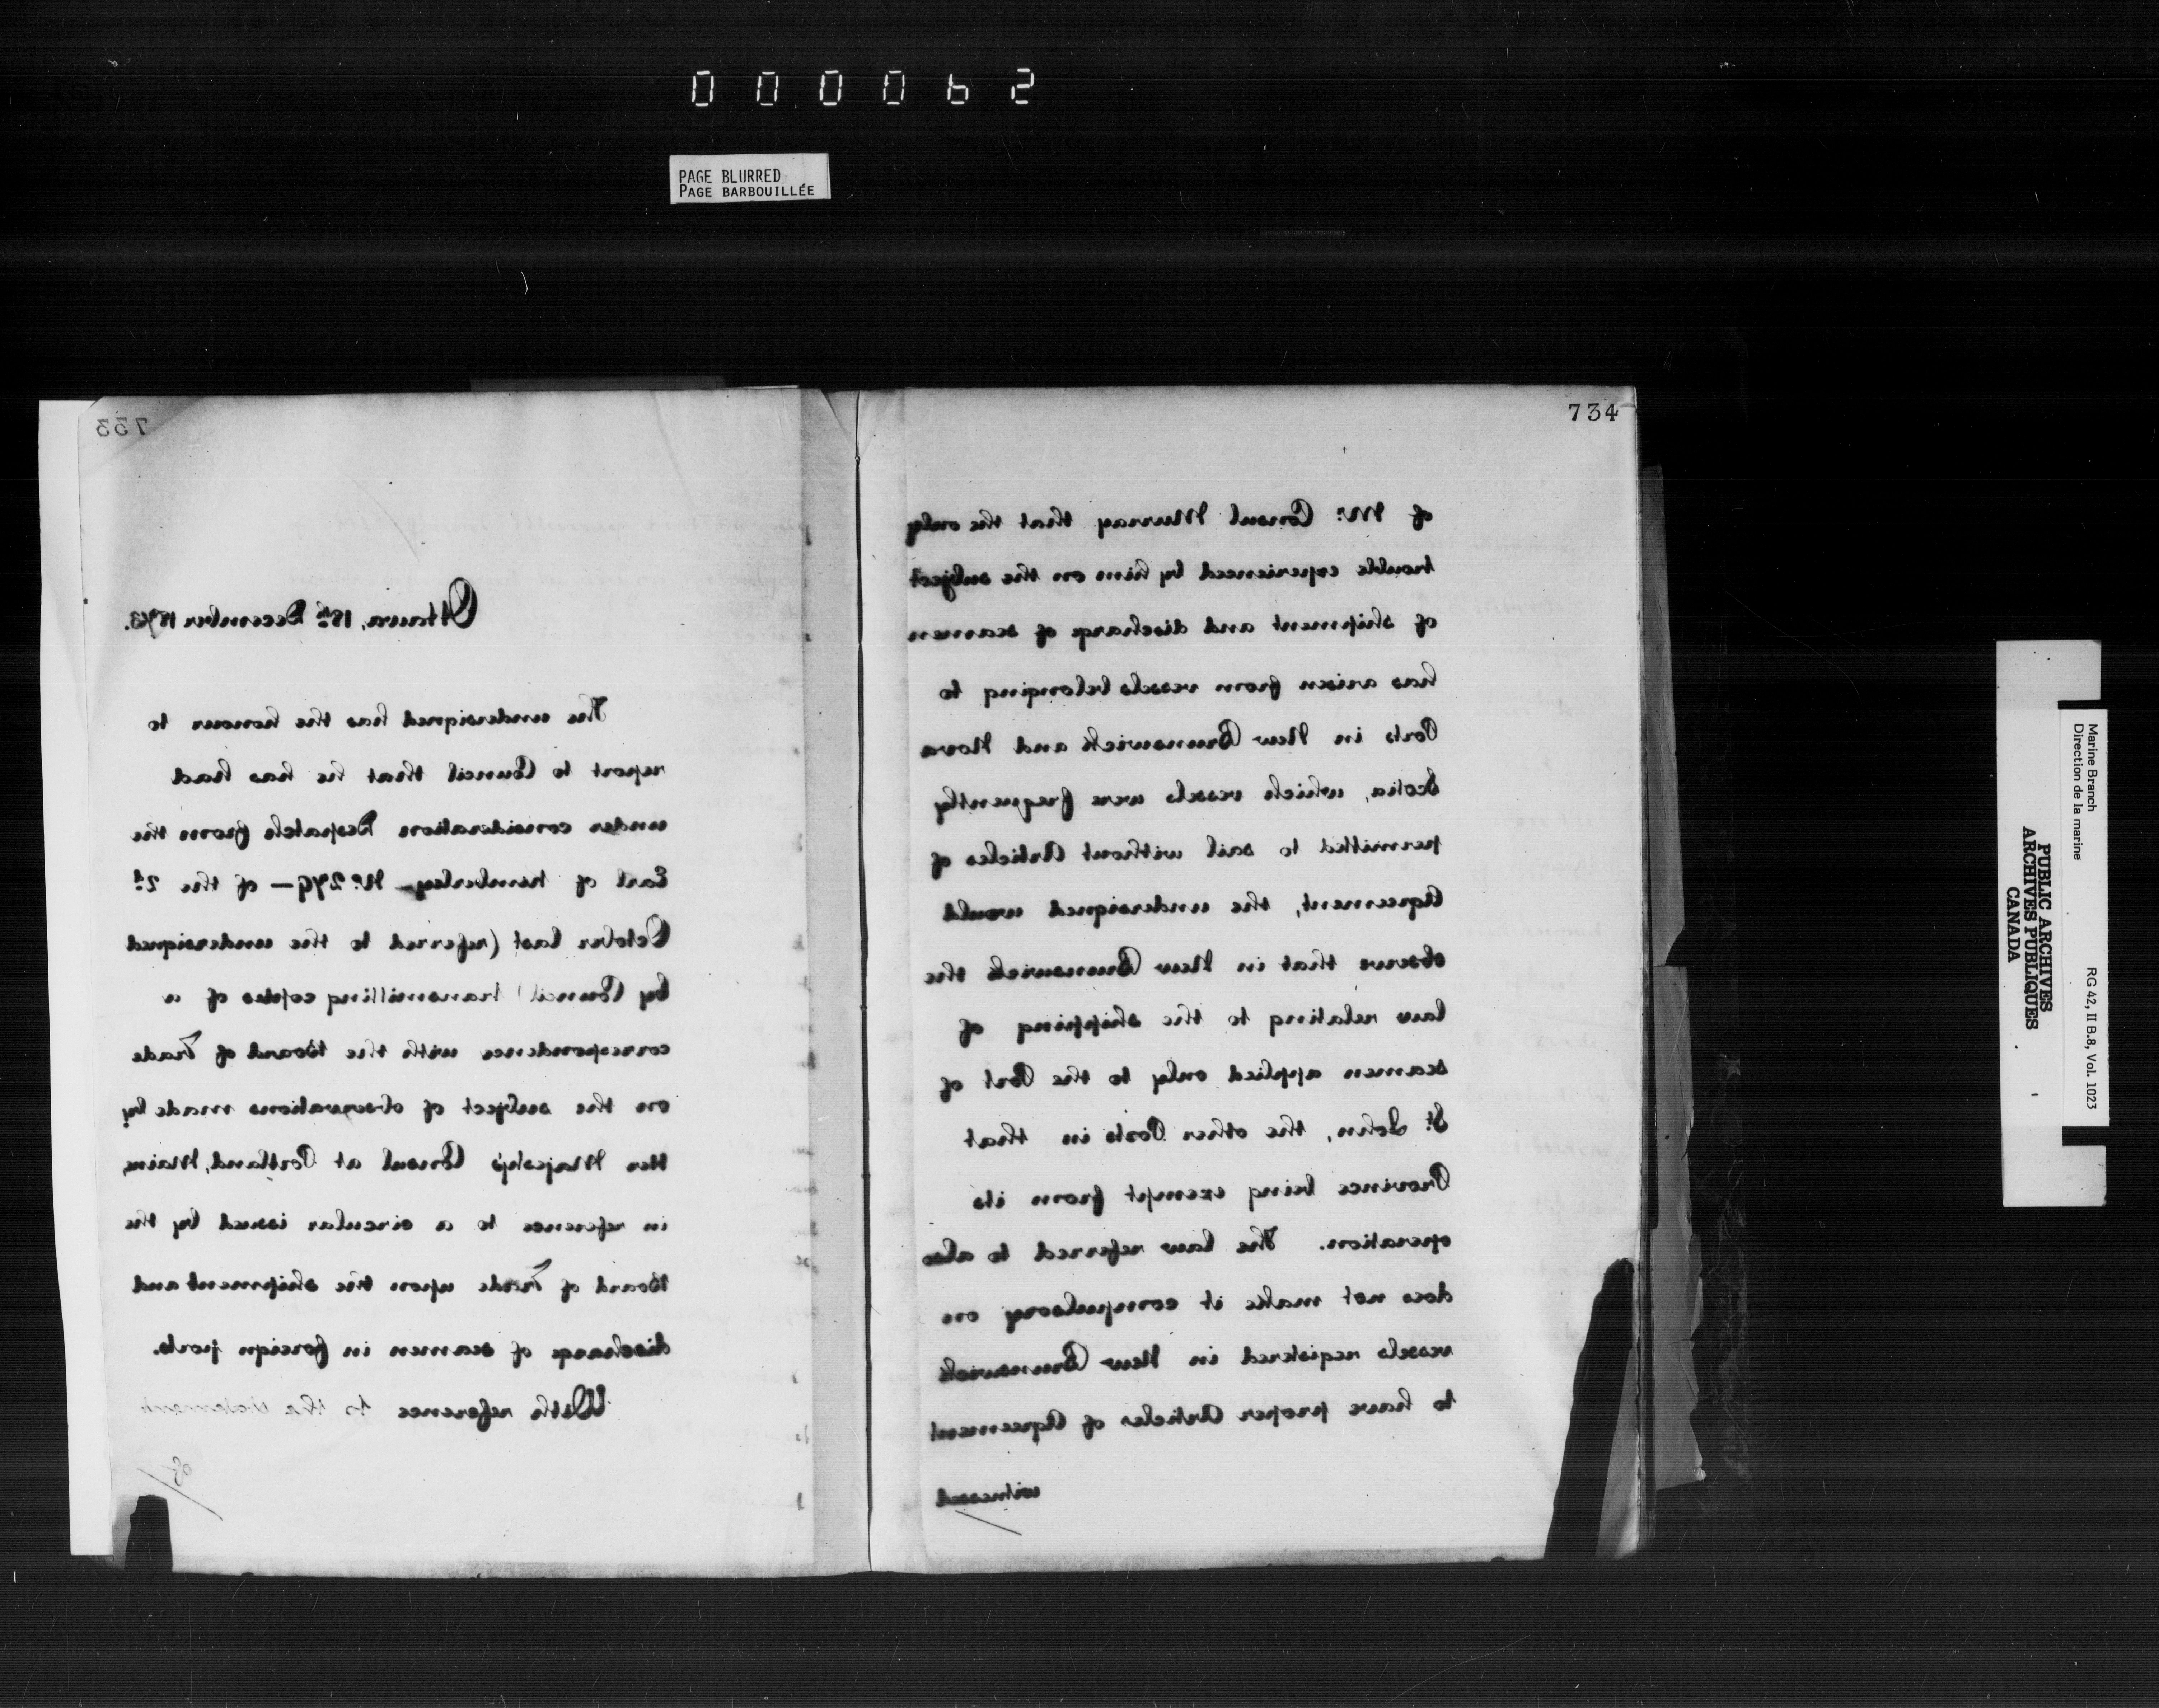 000062
PAGE BLURRED
PAGE BARBOUILLÉE
733
Ottawa, 18th December 1873.
The undersigned has the honour to
report to Council that he has had
under consideration Despatch from the
Earl of Kimberley - No. 279 - of the 2d
October last (referred to the undersigned
by Council) transmitting copies of a
correspondence with the Board of Trade
on the subject of observations made by
Her Majesty's Consul at Portland, Maine,
in reference to a circular issued by the
Board of Trade upon the shipment and
discharge of seamen in foreign ports.
With reference to the statement
of/
734
of Mr. Consul Murray that the only
trouble experienced by him on the subject
of shipment and discharge of seamen
has arisen from vessels belonging to
Ports in New Brunswick and Nova
Scotia, which vessels were frequently
permitted to sail without Articles of
Agreement, the undersigned would
observe that in New Brunswick the
law relating to the shipping of
seamen applied only to the Port of
St. John, the other Ports in that
Province being exempt from its
operation. The law referred to also
does not make it compulsory on
vessels registered in New Brunswick
to have proper Articles of Agreement
witnessed/
Marine Branch
Direction de la marine
RG 42, II B.8, Vol. 1023
PUBLIC ARCHIVES
ARCHIVES PUBLIQUES
CANADA